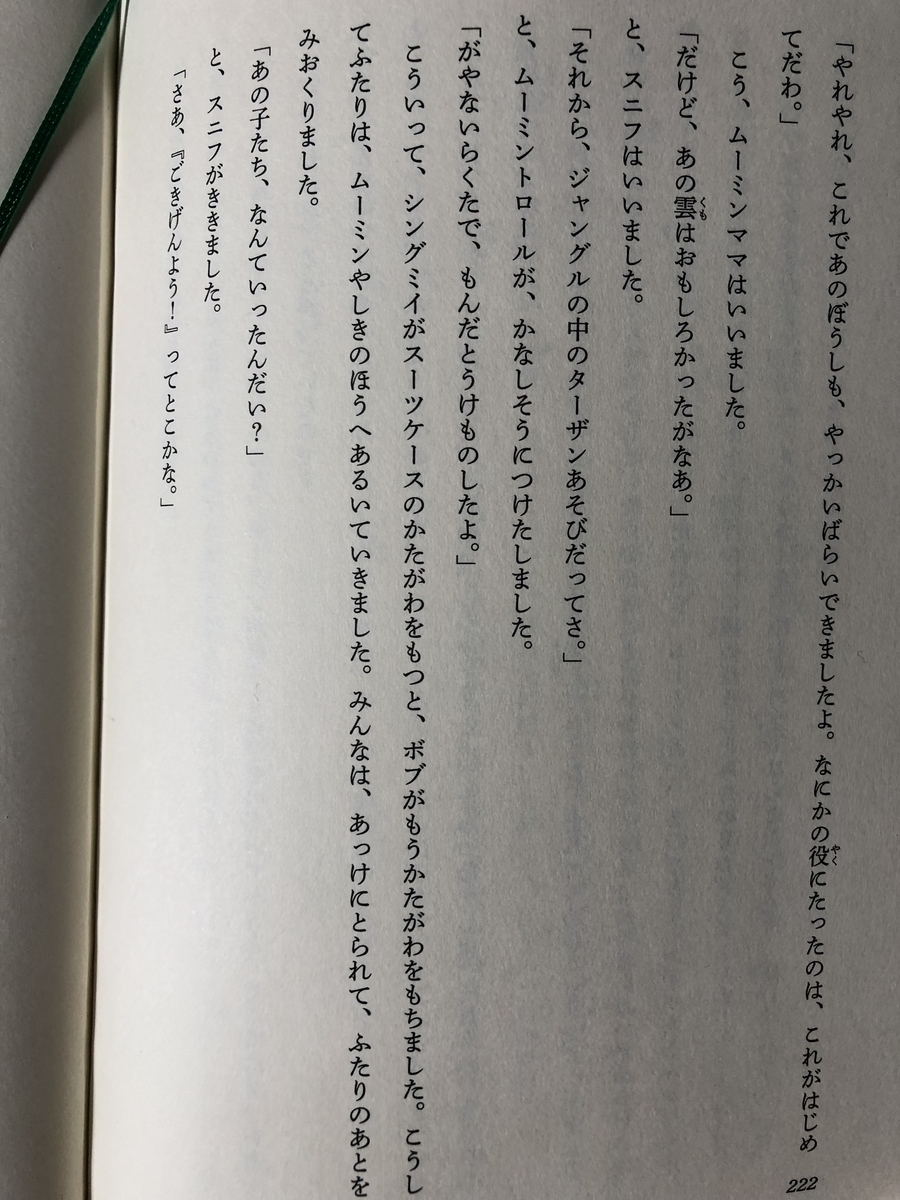 「やれやれ、これであのぼうしも、やっかいばらいできましたよ。なにかの役にたったのは、これがはじめ
てだわ。」
こう、ムーミンママはいいました。
「だけど、あの雲はおもしろかったがなあ。」
と、スニフはいいました。
「それから、ジャングルの中のターザンあそびだってさ。」
と、ムーミントロールが、かなしそうにつけたしました。
「がやないらくたで、もんだとうけものしたよ。」
こういって、シングミイがスーツケースのかたがわをもつと、ボブがもうかたがわをもちました。こうし
てふたりは、ムーミンやしきのほうへあるいていきました。みんなは、あっけにとられて、ふたりのあとを
みおくりました。
「あの子たち、なんていったんだい?」
と、スニフがききました。
「さあ、『ごきげんよう!』ってとこかな。」
222